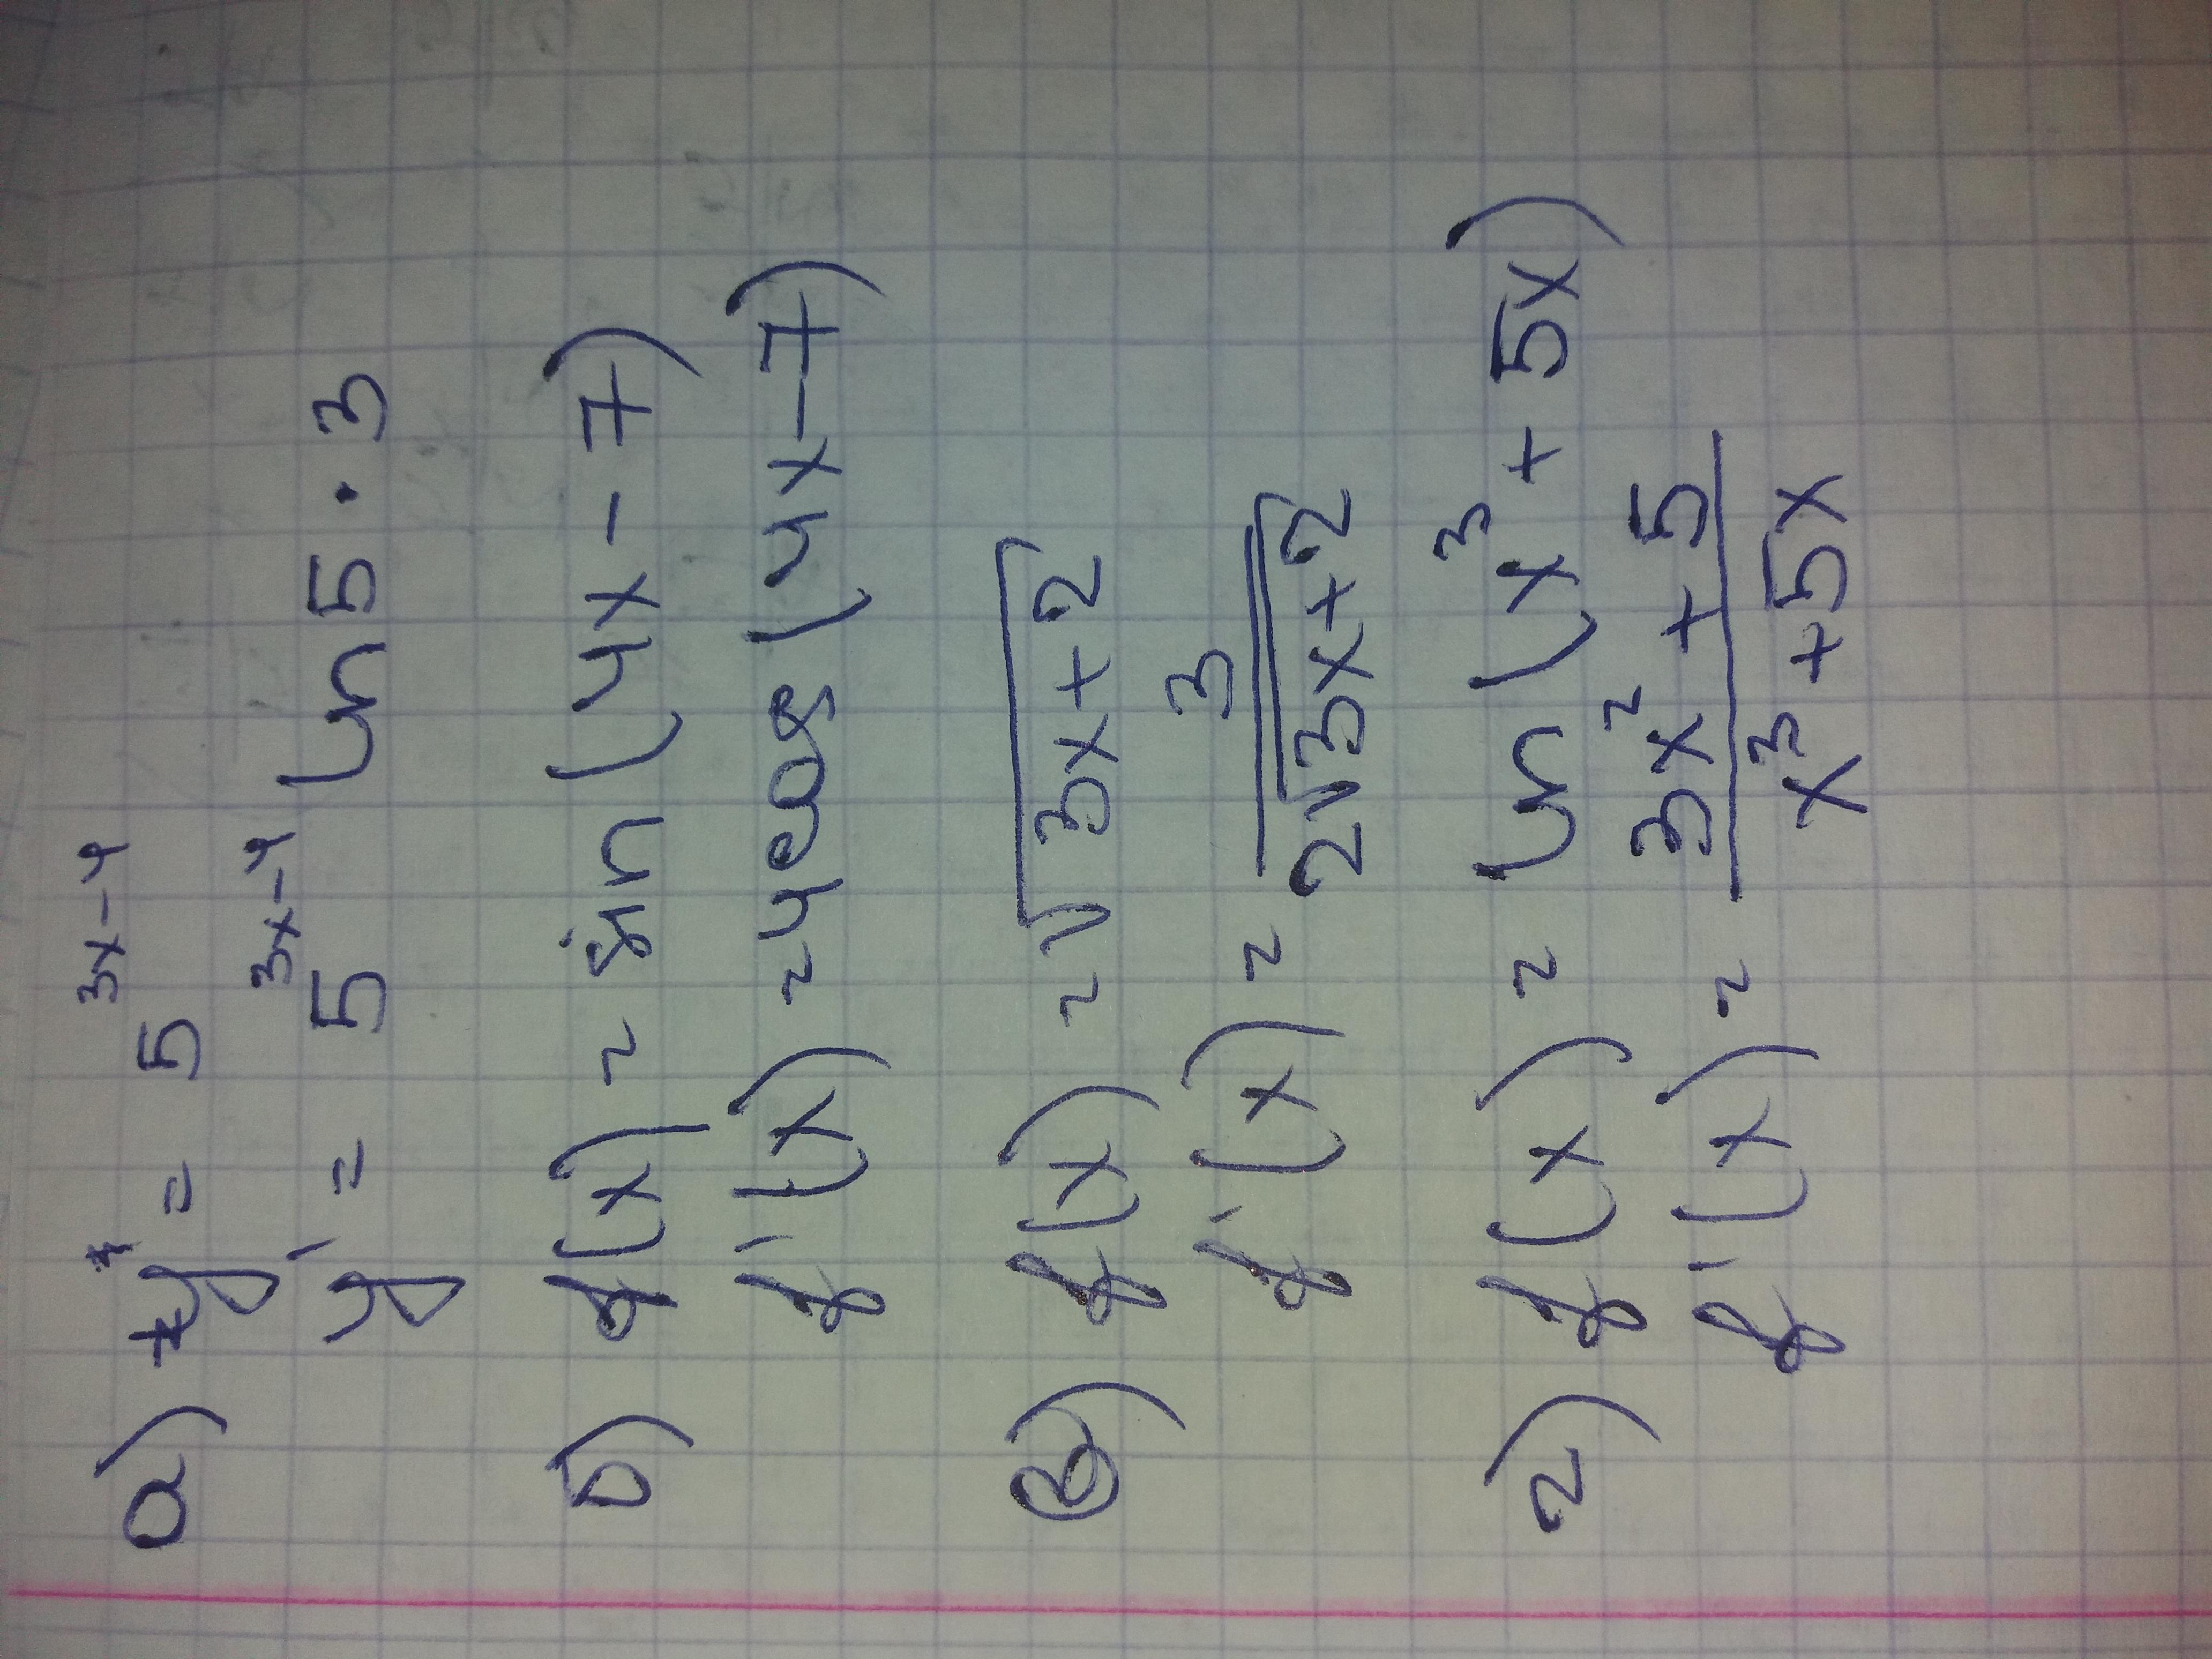 а) y = 5^(3x-4)
y' = 5^(3x-4) ln5 · 3
б) f(x) = sin(4x-7)
f'(x) = 4cos(4x-7)
в) f(x) = √(3x+2)
f'(x) = 3/(2√(3x+2))
г) f(x) = ln(x³+5x)
f'(x) = (3x²+5)/(x³+5x)